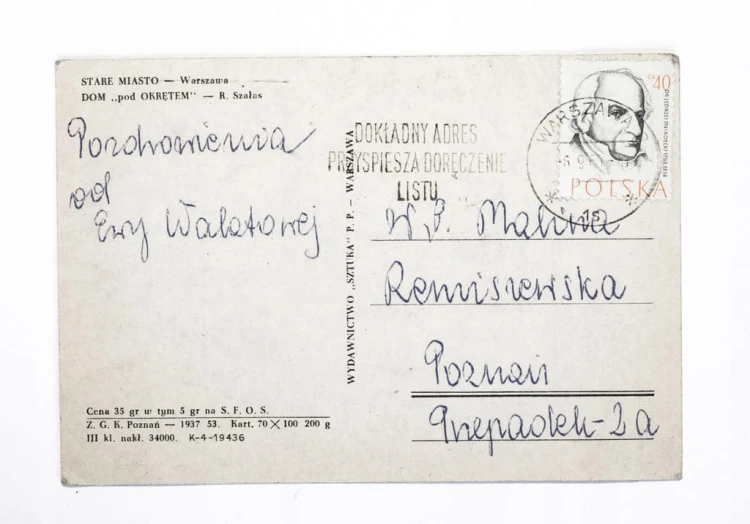 STARE MIASTO — Warszawa
DOM „pod OKRĘTEM” — R. Szałas
Pozdrowienia
od
Ewy Walatowej
DOKŁADNY ADRES
PRZYSPIESZA DORĘCZENIE
LISTU
WARSZAWA
15
40
POLSKA
WYDAWNICTWO „SZTUKA” P. P. – WARSZAWA
W.P. Malina
Remiszewska
Poznań
Przepadek-2a
Cena 35 gr w tym 5 gr na S. F. O. S.
Z. G. K. Poznań — 1937 53. Kart. 70 X 100 200 g
III kl. nakł. 34000. K-4-19436